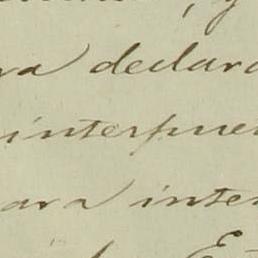 y
ra declara
interpue
ara inter
E